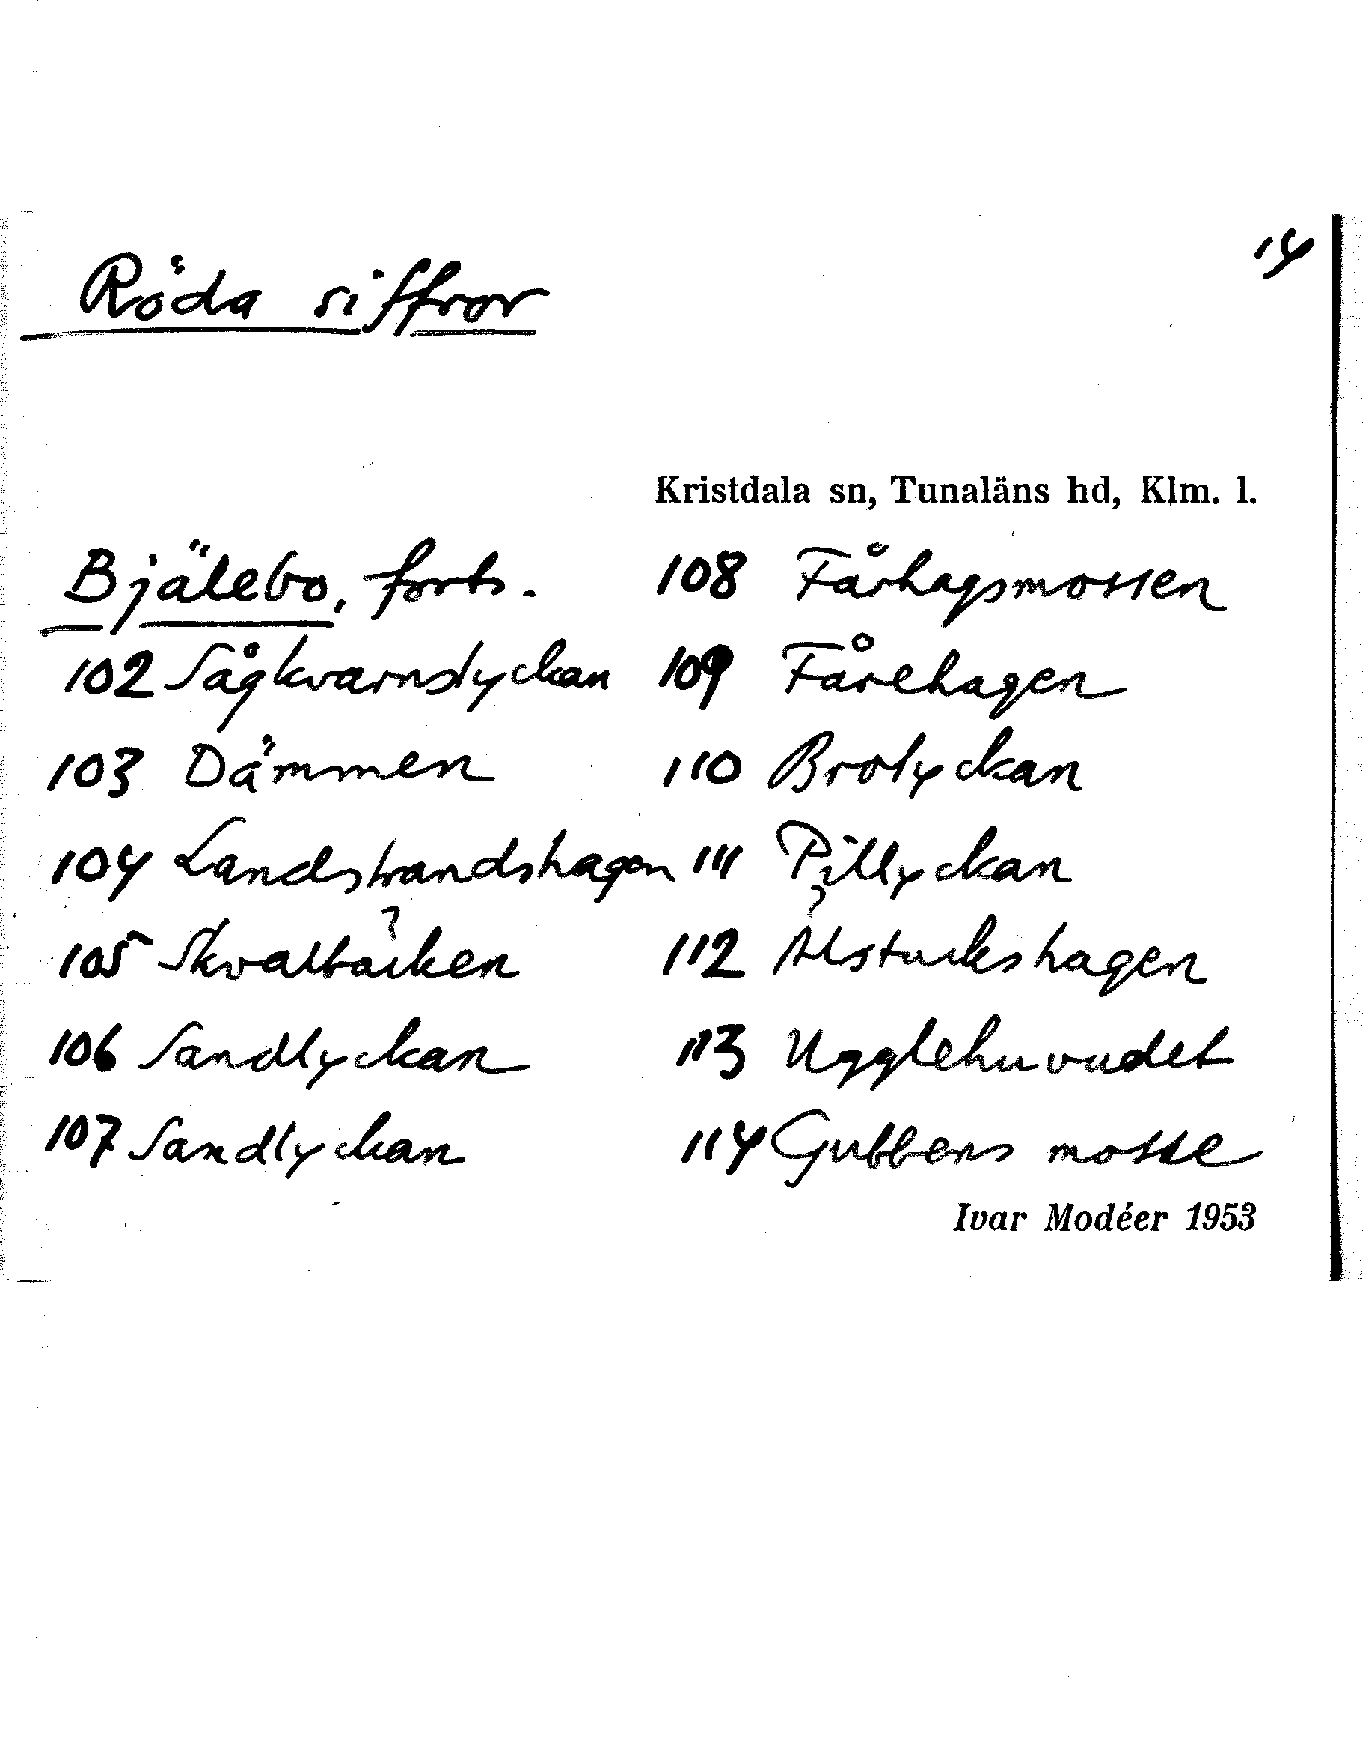 14
Röda siffror
Kristdala sn, Tunaläns hd, Klm. l.
Bjälebo, forts.
102 Sågkvarnslyckan
103 Dämmen
104 Landstrandshagen
105 Skvalbacken
?
106 Sandlyckan
107 Sandlyckan
108 Fårhagsmossen
109 Fårehagen
110 Brolyckan
111 Pillyckan
?
112 Alstuckshagen
113 Ugglehuvudet
114 Gubbens mosse
Ivar Modéer 1953